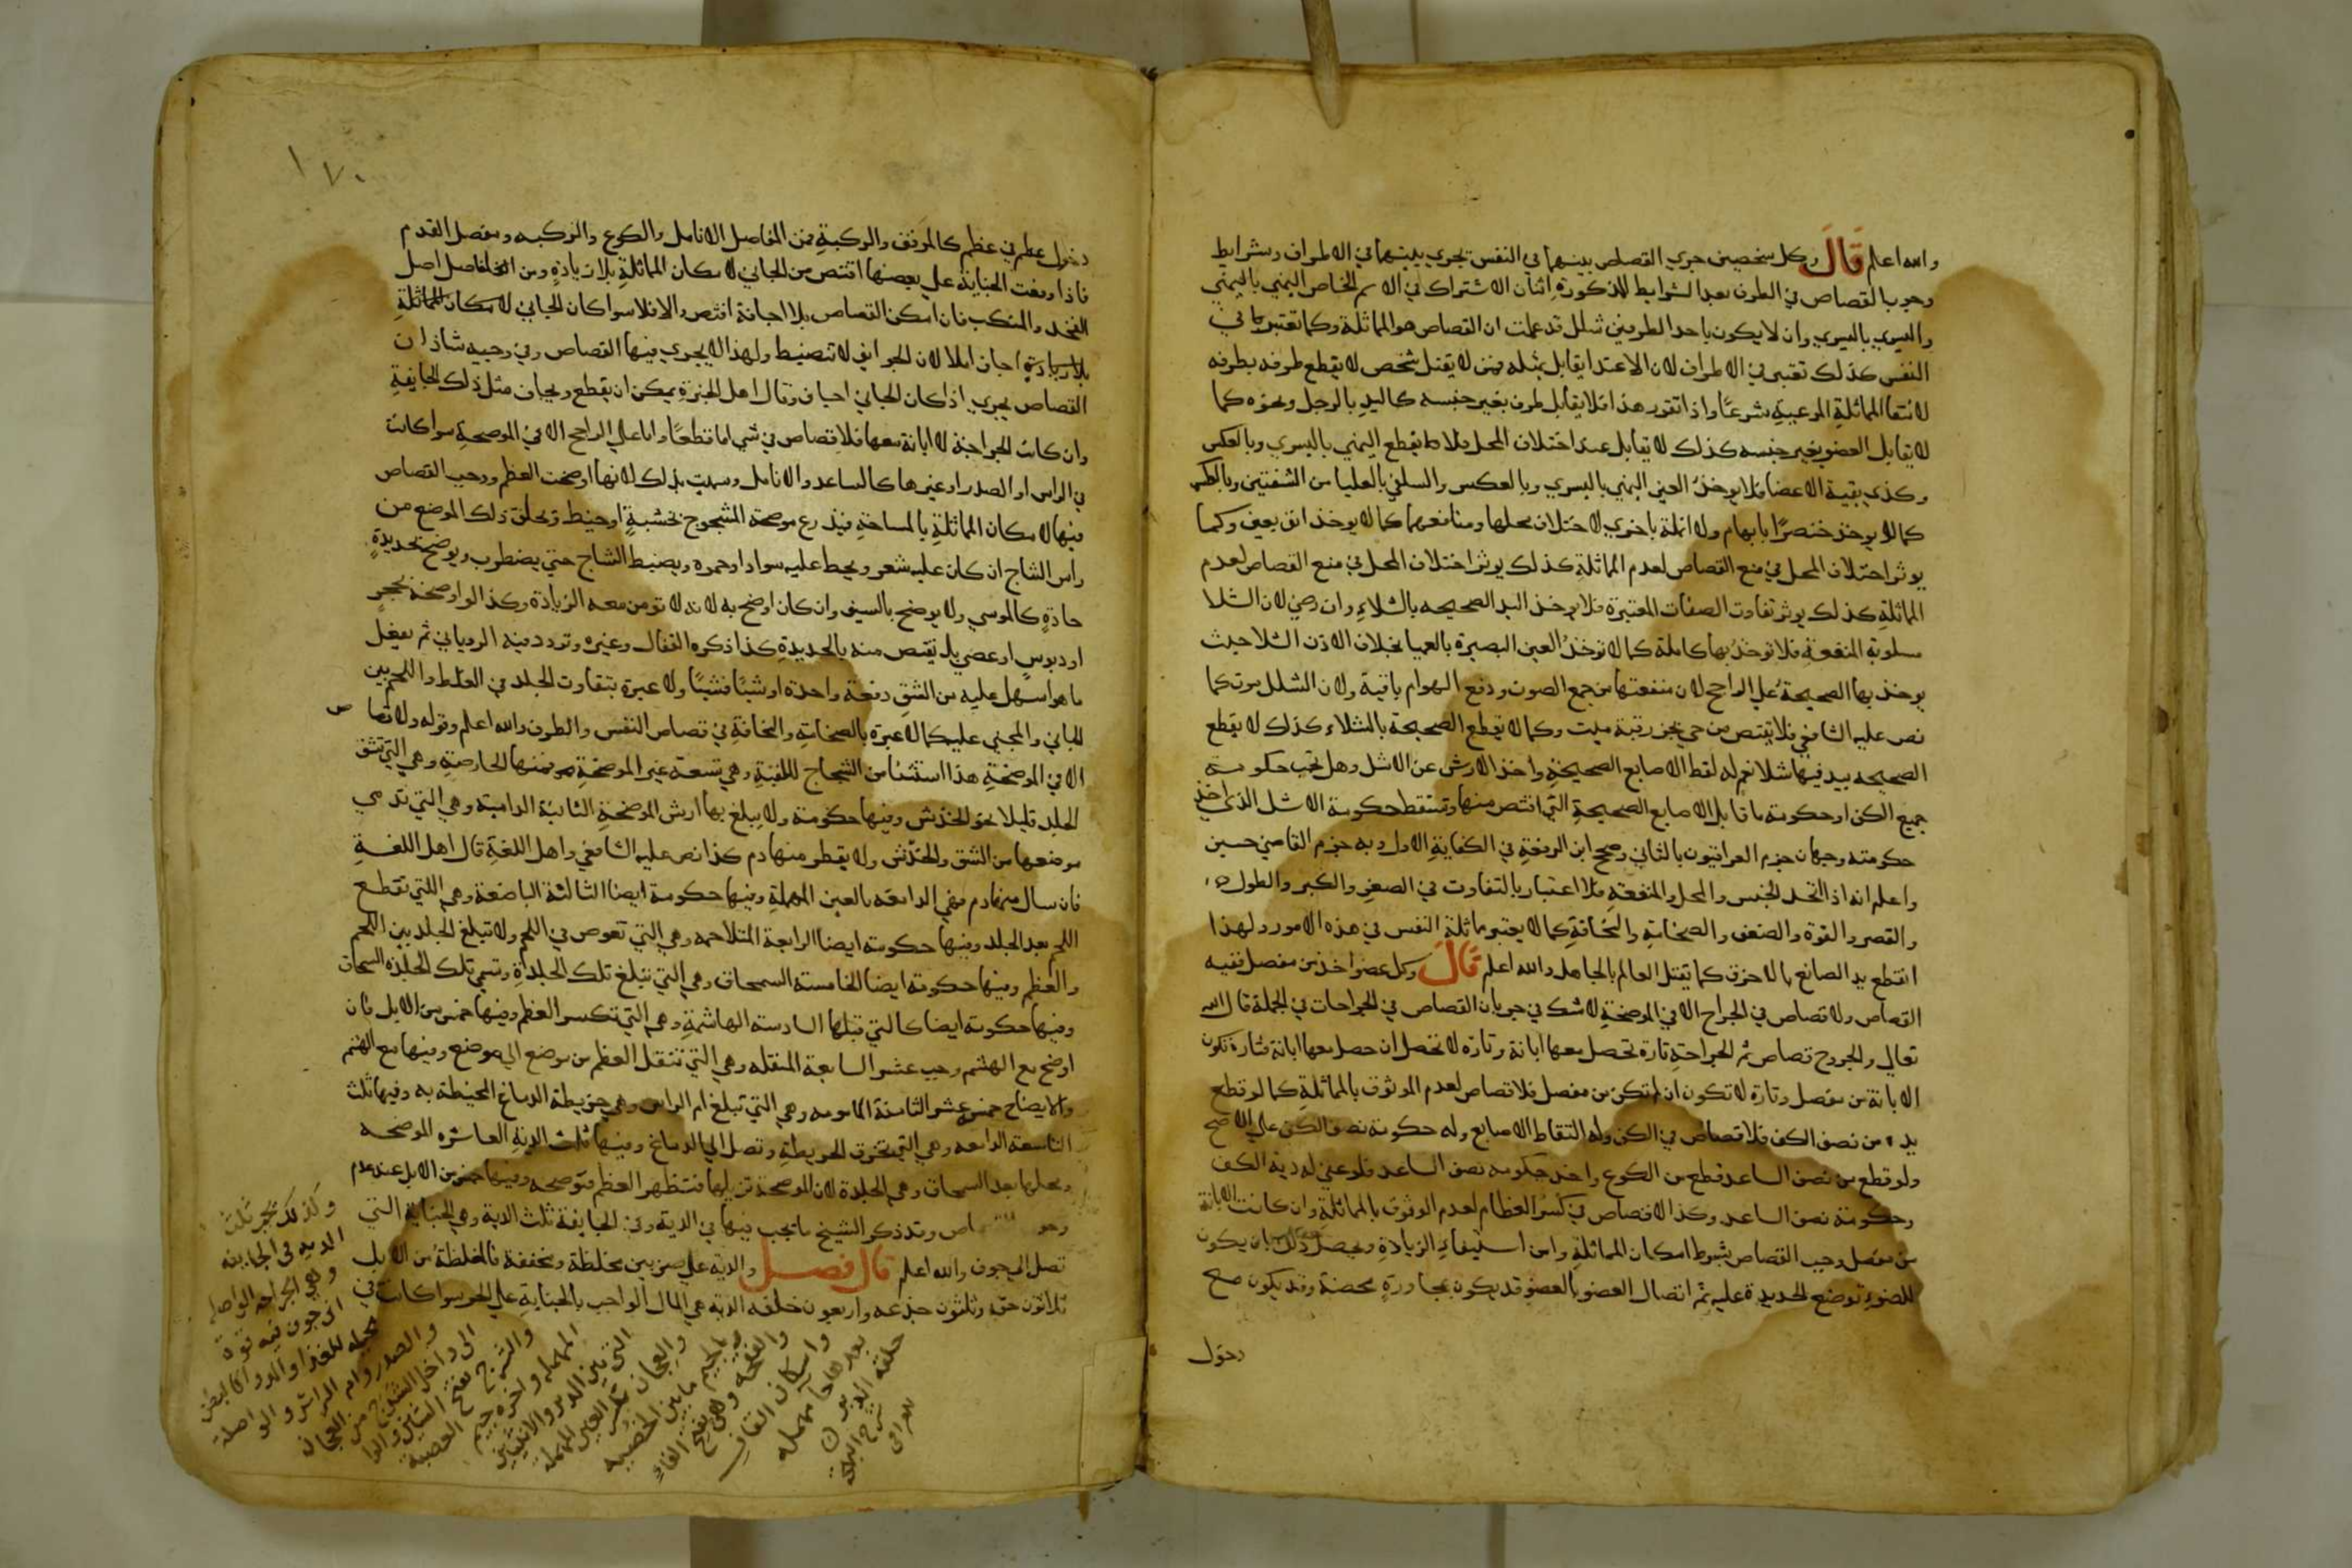 والله اعلم قال وكل شخصين جري القصاص بينهما في النفس يجري بينهما في الاطراف وشرايط
وجوب القصاص في الطرف بعد الشرايط المذكورة اثنان الاشتراك في الاسم الخاص اليمني باليمني
واليسري باليسري وان لا يكون باحد الطرفين شلل قد علمت ان القصاص هو المماثلة وكما تعتبر في
النفس كذلك تعتبر في الاطراف لان الاعتدا يقابل بمثله فمن لا يقتل بشخص لا يقطع طرفه بطرفه
لانتفا المماثلة المرعية شرعا واذا تقرر هذا فلا يقابل طرف بغير جنسه كاليد بالرجل ونحوه كما
لا يقابل العضو بغير جنسه كذلك لا يقابل عند اختلاف المحل فلا تقطع اليمني باليسري وبالعكس
وكذي بقية الاعضا فلا يوخذ العين اليمني باليسري وبالعكس والسفلي بالعليا من الشفتين وبالعكس
كما لا يوخذ خنصرا بابهام ولا انملة باخري لاختلاف محلها ومنافعهما كما لا يوخذ انف بعين وكما
يوثر اختلاف المحل في منع القصاص لعدم المماثلة كذلك يوثر اختلاف المحل في منع القصاص لعدم
المماثلة كذلك يوثر تفاوت الصفات المعتبرة فلا يوخذ اليد الصحيحه بالشلاء وان رضي لان الشلا
مسلوبة المنفعة فلا توخذ بها كاملة كما لا توخذ العين البصيرة بالعميا بخلاف الاذن الشلا حيث
يوخذ بها الصحيحة علي الراجح لان منفعتها من جمع الصوت ودفع الهوام باقية ولان الشلل موت كما
نص عليه الشافعي فلا يقتص من حي بحز رقبة ميت وكما لا يقطع الصحيحة بالشلاء كذلك لا يقطع
الصحيحه بيد فيها شلا نعم له لقط الاصابع الصحيحة واخذ الارش عن الاشل وهل تجب حكومة
جميع الكف او حكومة ما قابل الاصابع الصحيحة التي اقتص منها وتسقط حكومة الاشل الذي اخذ
حكومته وجهان جزم العراقيون بالثاني وصحح ابن الرفعة في الكفاية الاول وبه جزم القاضي حسين
واعلم انه اذا اتحد الجنس والمحل والمنفعة فلا اعتبار بالتفاوت في الصغر والكبر والطول
والقصر والقوة والضعف والضخامة والنحافة كما لا يعتبر مماثلة النفس في هذه الامور ولهذا
انقطع يد الصانع بالاخرق كما يقتل العالم بالجاهل والله اعلم قال وكل عضو اخذ من مفصل ففيه
القصاص ولا قصاص في الجراح الا في الموضحة لا شك في جريان القصاص في الجراحات في الجملة قال الله
تعالي والجروح قصاص ثم الجراحة تارة تحصل معها ابانة وتارة لا تحصل ان حصل معها ابانة فتارة تكون
الابانة من مفصل وتارة لا تكون ان لم تكن من مفصل فلا قصاص لعدم الموثوق بالمماثلة كما لو قطع
يده من نصف الكف فلا قصاص في الكف وله التقاط الاصابع وله حكومة نصف الكف علي الاصح
ولو قطع من نصف الساعد قطع من الكوع واخذ حكومه نصف الساعد فلو عفي له دية الكف
وحكومة نصف الساعد وكذا لا قصاص في كسر العظام لعدم الوثوق بالمماثلة وان كانت الابانة
من مفصل وجب القصاص بشرط امكان المماثلة وامن استيفاء الزيادة ويحصل ذلك بان يكون
للعضو توضع الحديدة عليه ثم اتصال العضو بالعضو قد يكون بمجاورة محضة وقد يكون مع
دخول
١٧٠
دخول عظم في عظم كالمرفق والركبة فمن المفاصل الانامل والكوع والركبه ومفصل القدم
فاذا وقعت الجناية علي بعضها اقتص من الجاني لامكان المماثلة بلا زيادة ومن المفاصل اصل
الفخذ والمنكب فان امكن القصاص بلا اجافة اقتص والا فلا سوا كان الجاني لامكان المماثلة
بلا زيادة اجاف ام لا لان الجوايف لا تنضبط ولهذا لا يجري فيها القصاص وفي وجه شاذ ان
القصاص يجري اذا كان الجاني اجاف وقال اهل الخبرة يمكن ان يقطع ويجاف مثل ذلك الجايفة
وان كانت الجراحة لا ابانة معها فلا قصاص في شي اما قطعا واما علي الراجح الا في الموضحة سوا كانت
في الراس او الصدر او غيرها كالساعد والانامل وسميت بذلك لانها اوضحت العظم ووجب القصاص
فيها لامكان المماثلة بالمساحة فيذرع موضحة المشجوج بخشبة او خيط ويحلق ذلك الموضع من
راس الشاج ان كان عليه شعر ويخط عليه سواد او حمره ويضبط الشاج حتي يضطرب ويوضح بحديدة
حادة كالموسي ولا يوضح بالسيف وان كان اوضح به لانه لا تومن معه الزيادة وكذا لو اوضحه بحجر
او دبوس او عصي بل تقتص منه بالحديدة كذا ذكره القفال وغيره وتردد فيه الروياني ثم يفعل
ما هو اسهل عليه من الشق دفعة واحدة او شيا فشيا ولا عبرة بتفاوت الجلد في الغلظ واللحم بين
الجاني والمجني عليه كما لا عبرة بالضخامة والنحافة في قصاص النفس والطرف والله اعلم وقوله ولا قصاص
الا في الموضحة هذا استثنا من الشجاج الباقية وهي تسعة غير الموضحة فمنها الحارصة وهي التي تشق
الجلد قليلا نحو الخدش وفيها حكومة ولا يبلغ بها ارش الموضحة الثانية الدامية وهي التي تدمي
موضعها من الشق والخدش ولا يقطر منها دم كذا نص عليه الشافعي واهل اللغة قال اهل اللغة
فان سال منها دم فهي الدامعه بالعين المهملة وفيها حكومة ايضا الثالثة الباضعة وهي اللتي تقطع
اللحم بعد الجلد وفيها حكومته ايضا الرابعة المتلاحمه وهي التي تغوص في اللحم ولا تبلغ الجلد بين اللحم
والعظم وفيها حكومة ايضا الخامسة السمحاق وهي التي تبلغ تلك الجلدة وتسمي تلك الجلدة السمحاق
وفيها حكومة ايضا كالتي قبلها السادسه الهاشمة وهي التي تكسر العظم وفيها خمس من الابل فان
اوضح مع الهشم وجب عشر السابعة المنقله وهي التي تنقل العظم من موضع الي موضع وفيها مع الهشم
والايضاح خمس عشر الثامنة المامومه وهي التي تبلغ ام الراس وهي خريطة الدماغ المحيطة به وفيها ثلث
التاسعة الدامغه وهي التي تخرق الخريطة وتصل الي الدماغ وفيها ثلث الدية العاشره الموضحه
ومحلها بعد السمحاق وهي الجلدة لان الموضحة تزيلها فتظهر العظم فتوضحه وفيها خمس من الابل عند عدم
وجو القصاص وقد ذكر الشيخ ما يجب فيها في الدية وفي الجايفة ثلث الدية وهي الجناية التي
تصل الي الجوف والله اعلم قال فصل والدية علي ضربين مغلظة ومخففة فالمغلظة من الابل
ثلاثون حقة وثلثون جذعه واربعون خلفه الدية هي المال الواجب بالجناية علي الحر سوا كانت في
وكذلك تجب ثلث
الديه في الجايفه
وهي الجراحه الواصلة
الى جوف فيه قوة
محيله للغذا والدوا كالبطن
والصدر
الى داخل
والشرج بفتح الشين والرا
المهمله واخره جيم العصبة
التي بين الدبر والانثيين
والعجان بكسر العين المهملة
وبالجيم ما بين الخصيه
والفقحه وهي بفتح الفاء
واسكان القاف
بعدها حا مهمله
حلقة الدبر
شرح البهجة
للعراقي